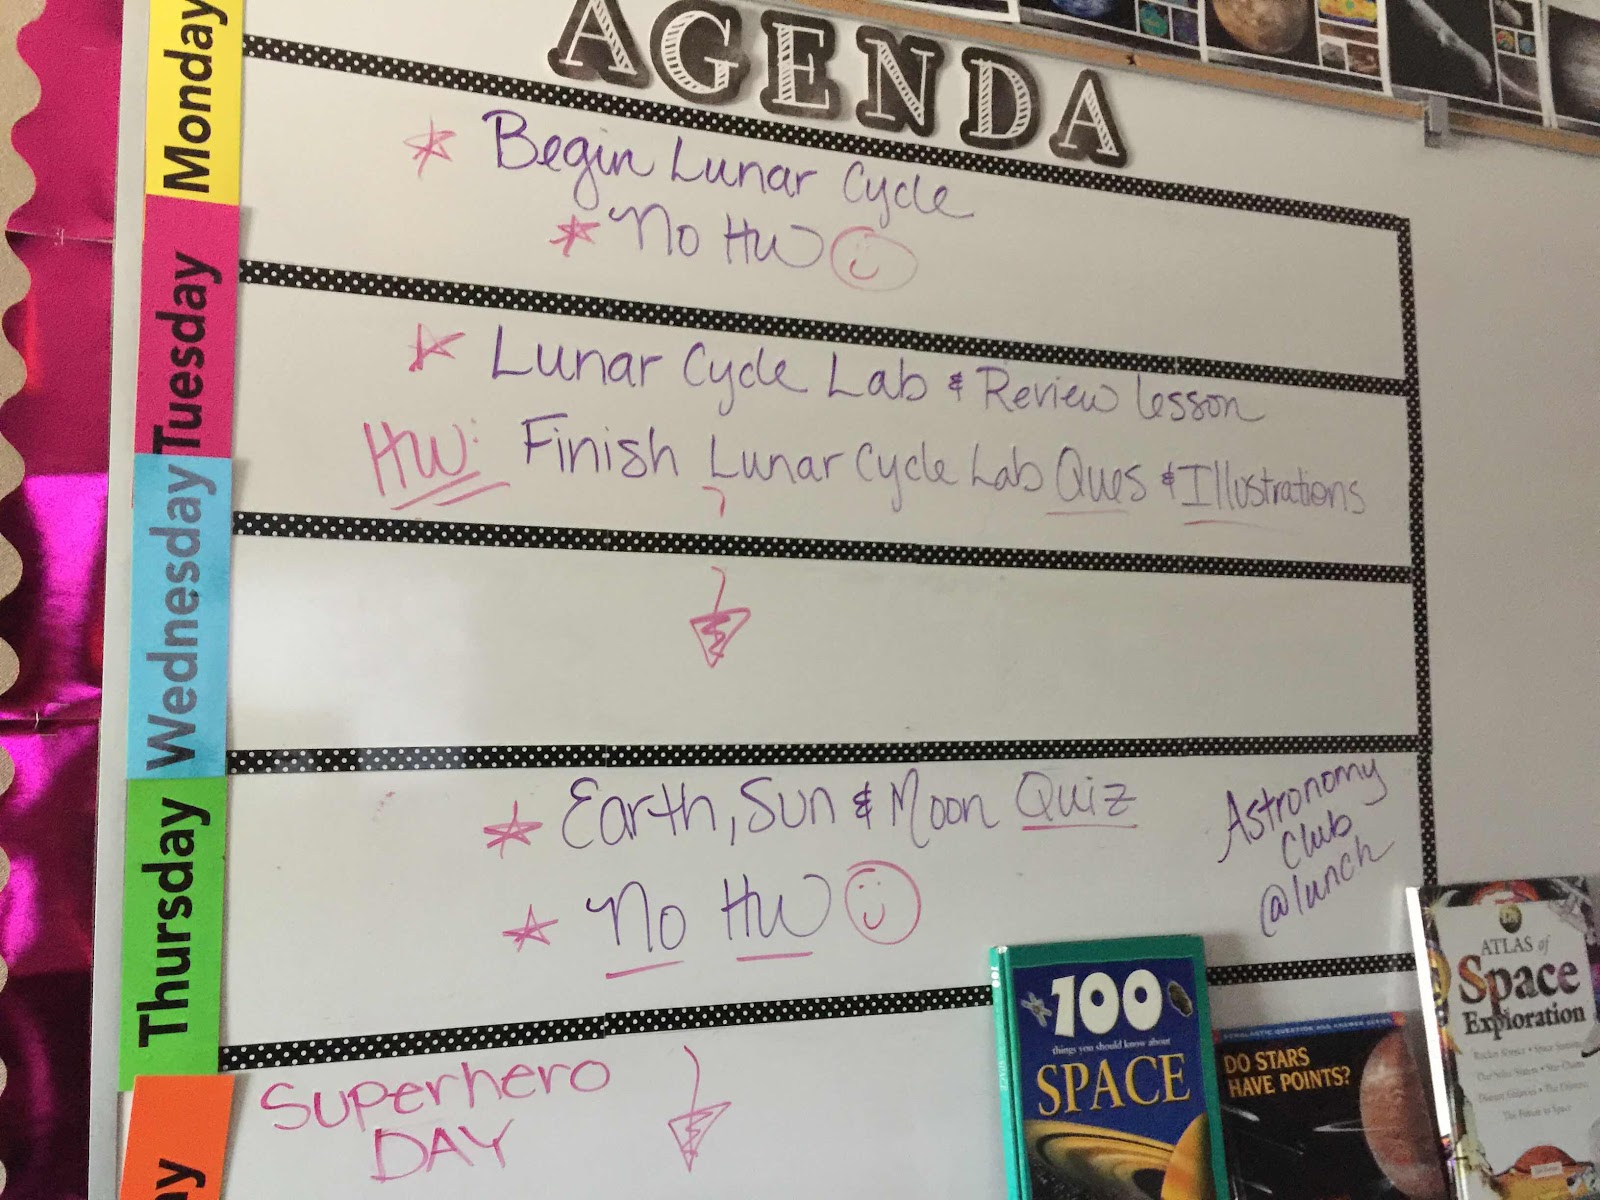 AGENDA
Monday
Begin Lunar Cycle
No HW
Tuesday
Lunar Cycle Lab & Review lesson
HW: Finish Lunar Cycle Lab Ques & Illustrations
Wednesday
Thursday
Earth, Sun & Moon Quiz
No HW
Astronomy
Club
@lunch
ay
Superhero
DAY
100
things you should know about
SPACE
SPACE
SCHOLASTIC QUESTION AND ANSWER SERIES
DO STARS
HAVE POINTS?
ATLAS of
Space
Exploration